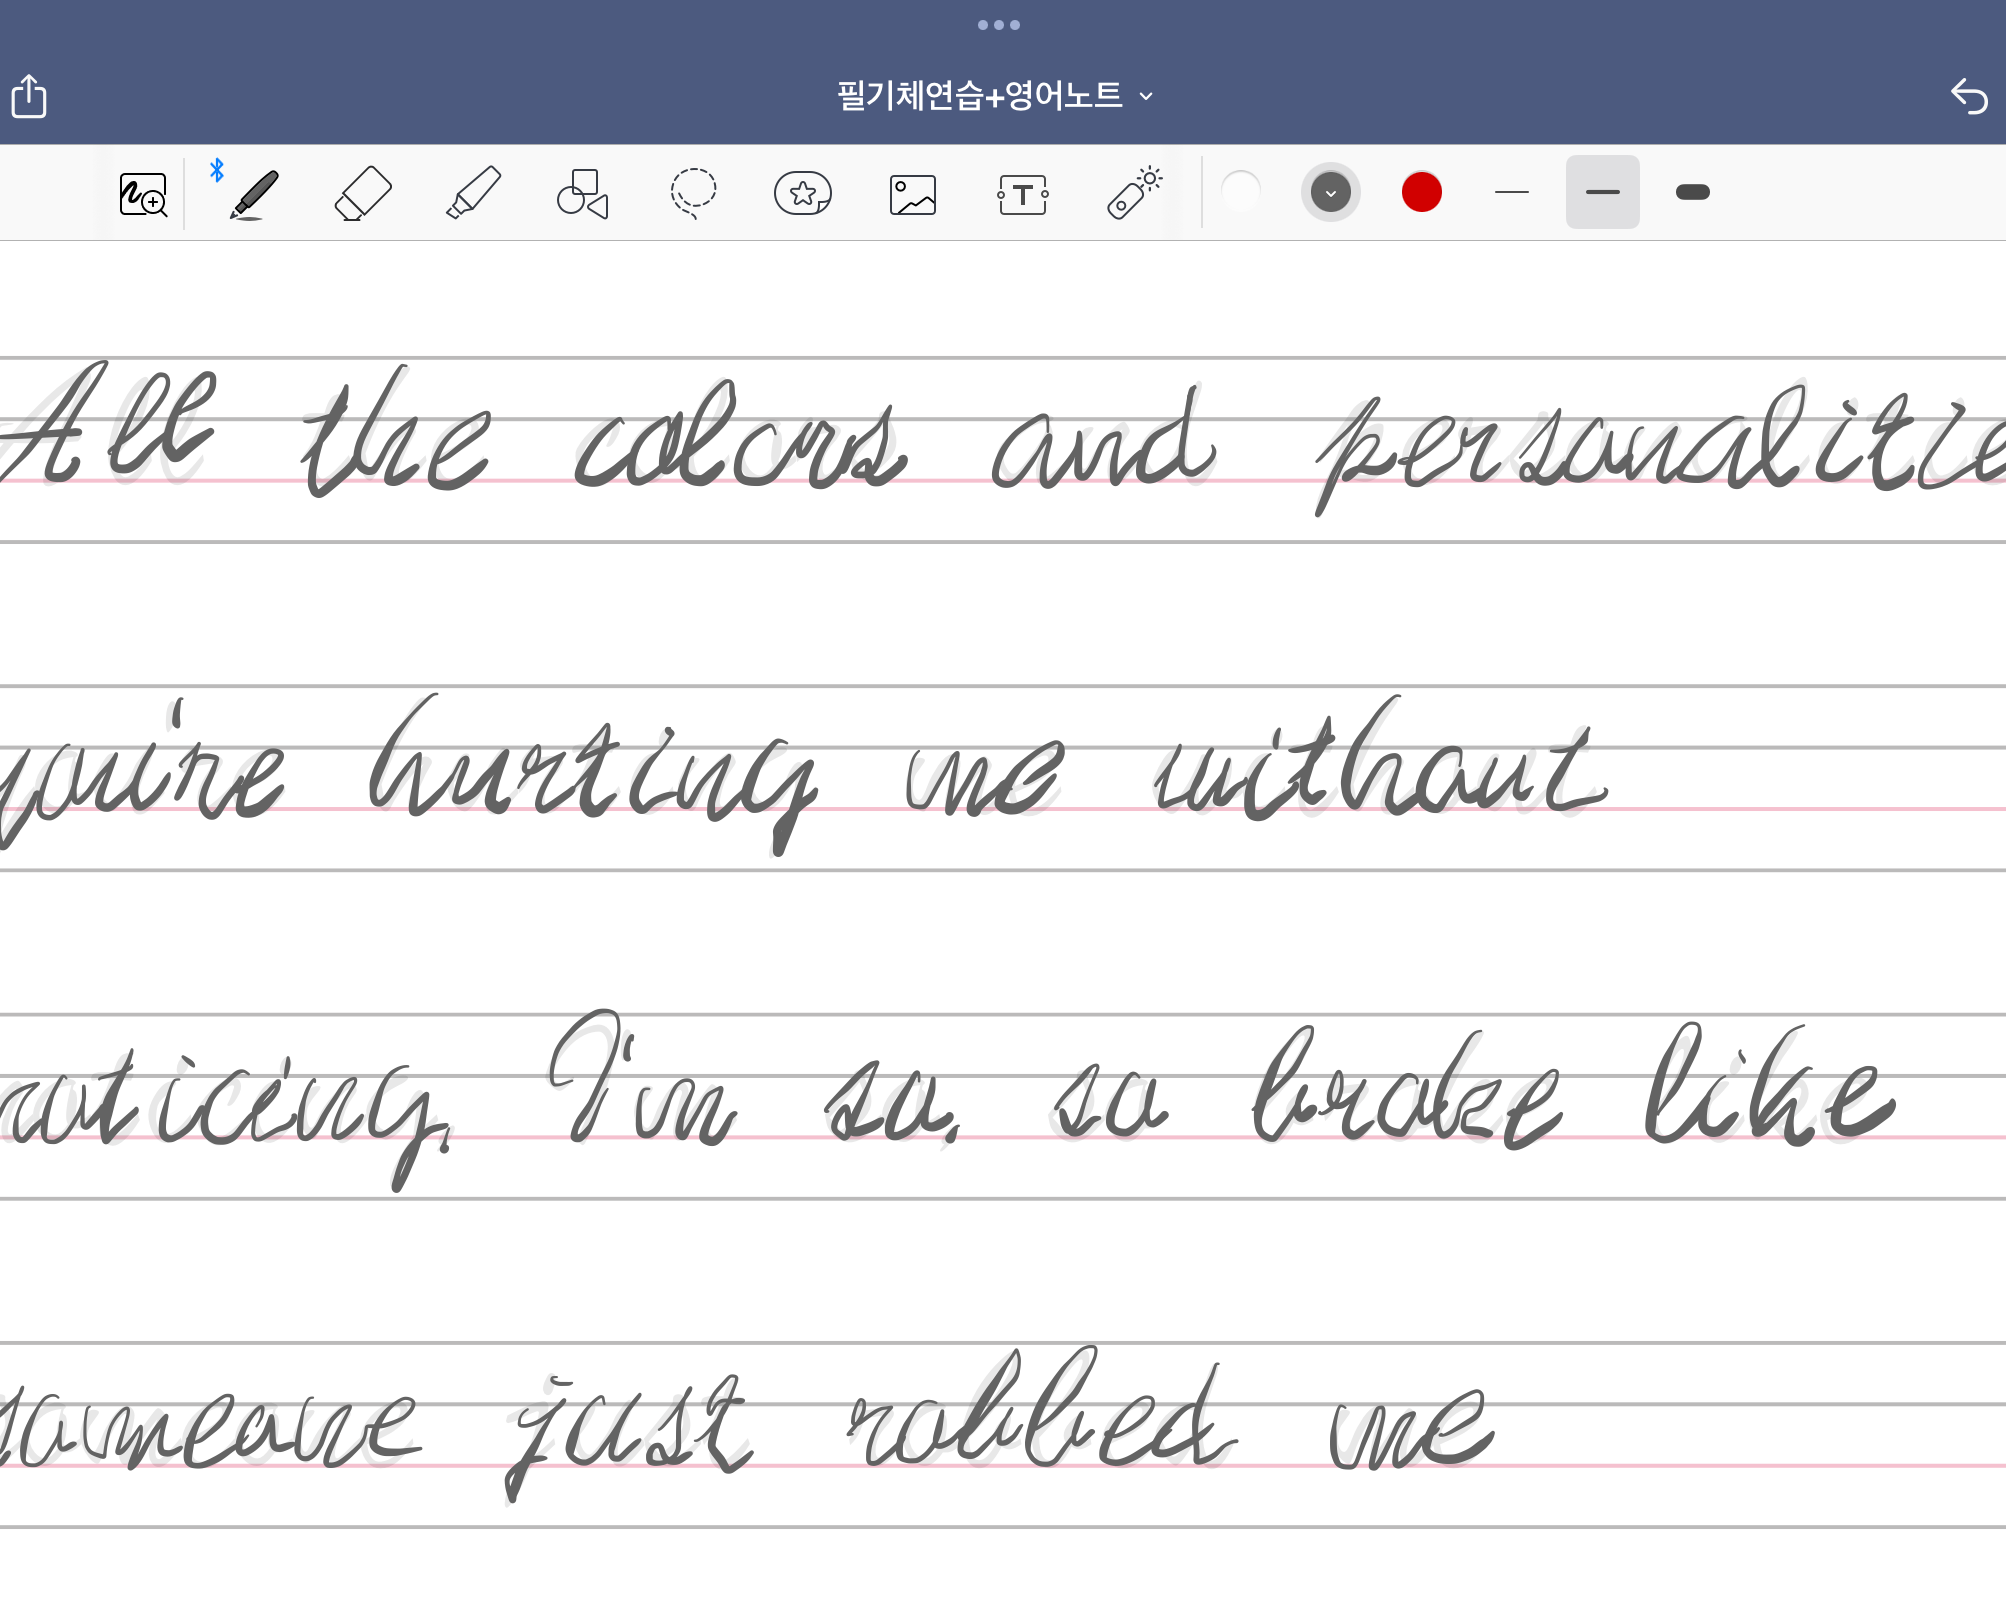 필기체연습+영어노트
All the colors and personalitie
you're hurting me without
noticing. I'm so, so broke like
someone just robbed me